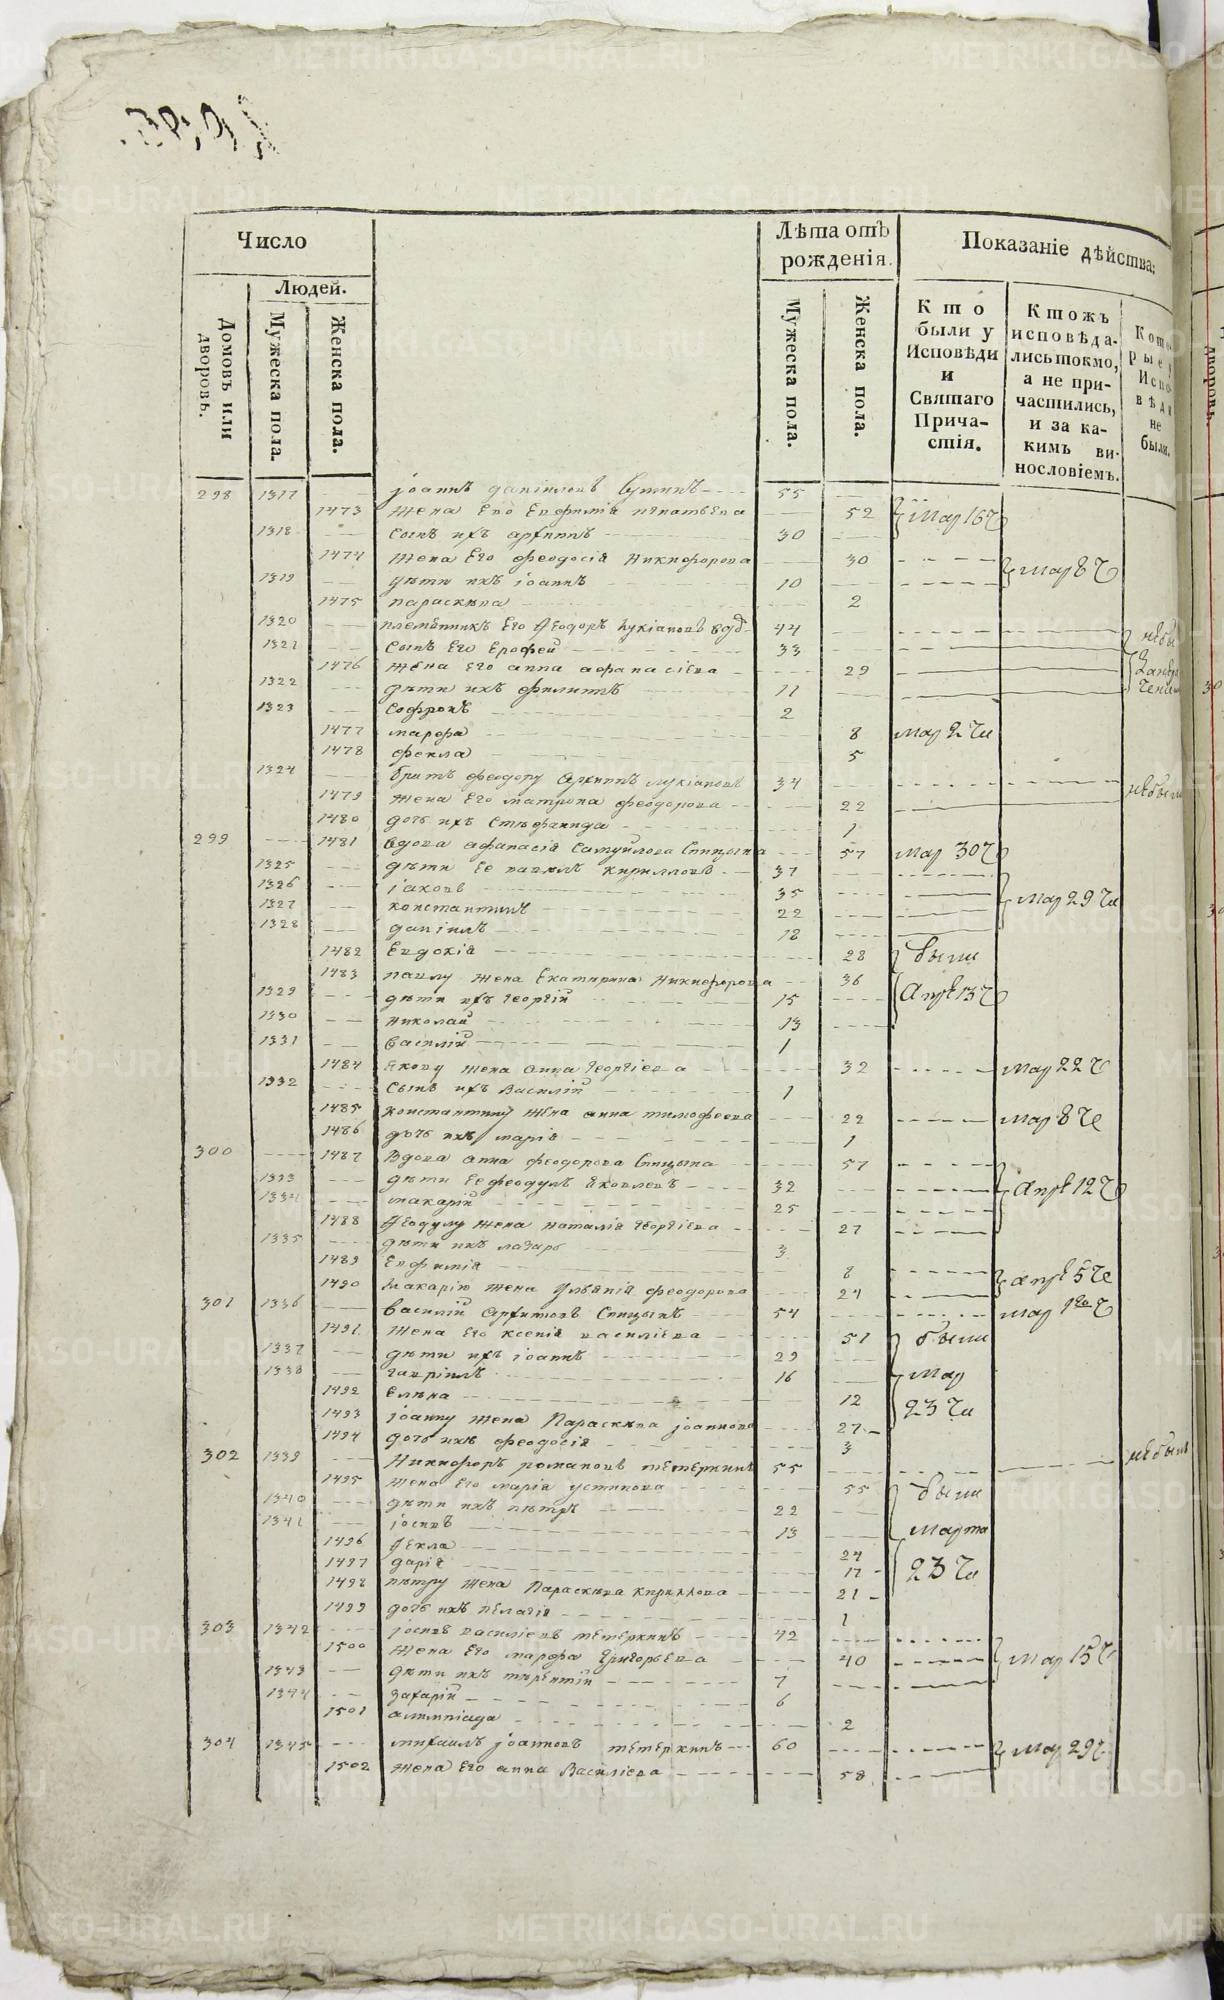 Число
Лѣта отъ рожденія.
Показаніе дѣйства:
Людей.
Домовъ или дворовъ.
Мужеска пола.
Женска пола.
Мужеска пола.
Женска пола.
Кто были у Исповѣди и Святаго Причастія.
Ктожъ исповѣдались токмо, а не причастились, и за какимъ винословіемъ.
Которые у Исповѣди не были.
298 1317 іоаннъ даніиловъ 55
1473 жена его Евфимія игнатьева 52 Мар 16 ч
1318 сынъ ихъ архиппъ 30
1474 жена его феодосія Никифорова 30 мар 8 ч
1319 дѣти ихъ іоаннъ 10
1475 параскѣва 2
1320 племѣнникъ его Ѳеодоръ лукіановъ 44
1321 сынъ его Ерофей 33
1476 жена его анна афанасіева 29
1322 дѣти ихъ филиппъ 11
1323 софронъ 2
1477 марфа 8 мар 27 чи
1478 фекла 5
1324 братъ феодору архиппъ лукіановъ 34 небылъ
1479 жена его матрона феодорова 22
1480 дочь ихъ стефанида 1
299 1481 вдова афанасія самуйлова Спицына 57 мар 30 ч
1325 дѣти ее павелъ кирилловъ 37
1326 іаковъ 35
1327 константинъ 22 мар 29 чи
1328 даніилъ 18
1482 Евдокія 28 были
1483 павлу жена Екатирина Никифорова 36 Апрѣ 13 ч
1329 дѣти ихъ георгій 15
1330 николай 13
1331 василій 1
1484 якову жена анна георгіева 32 мар 22 ч
1332 сынъ ихъ василій 1
1485 константину жена анна тимофеева 22 мар 8 че
1486 дочь ихъ марія 1
300 1487 вдова анна феодорова Спицына 57
1333 дѣти ее феодулъ яковлевъ 32 апрѣ 12 ч
1334 макарій 25
1488 Ѳеодулу жена наталія георгіева 27
1335 дѣти ихъ лазарь 3
1489 Евфимія 8
1490 макарію жена Ульянія феодорова 24 апрѣ 5 че
301 1336 василій архиповъ Спицынъ 54
1491 жена его ксенія василіева 51 были
1337 дѣти ихъ іоаннъ 29
1338 гавріилъ 16 мар
1492 Елѣна 12 23 чи
1493 іоанну жена Параскѣва іоаннова 27
1494 дочь ихъ феодосія 3
302 1339 Никифоръ романовъ тетеркинъ 55 небылъ
1495 жена его марія устинова 55 были
1340 дѣти ихъ пѣтръ 22
1341 іосивъ 13 марта
1496 Ѳекла 24
1497 дарія 17 23 чи
1498 пѣтру жена Параскѣва кириллова 21
1499 дочь ихъ пелагія 1
303 1342 іосивъ василіевъ тетеркинъ 42
1500 жена его марфа григорьева 40 мар 15 ч
1343 дѣти ихъ терентій 7
1344 захарій 6
1501 алимпіада 2
304 1345 михаилъ іоанновъ тетеркинъ 60 мар 29 ч
1502 жена его анна василіева 58